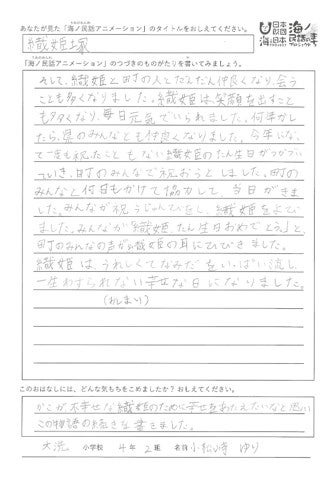 あなたが見た「海ノ民話アニメーション」のタイトルをおしえてください。
日本財団
海と日本
PROJECT
海ノ民話のまち
プロジェクト
織姫塚
「海ノ民話アニメーション」のつづきのものがたりを書いてみましょう。
そして、織姫と町の人とだんだん仲良くなり、会う
ことも多くなりました。織姫は、笑顔を出すこと
も多くなり、毎日元気でいられました。何年かし
たら、県のみんなとも仲良くなりました。今年になっ
て一度も祝ったこともない織姫のたん生日が
町のみんなで祝おうとしました。町の
みんなと何日もかけて協力して、当日がきま
した。みんなが祝うじゅんびをし、織姫をよび
ました。みんなが「織姫、たん生日おめでとう。」と、
町のみんなの声が織姫の耳にひびきました。
織姫は、うれしくてなみだをいっぱい流し、
一生わすられない幸せな日になりました。
(おしまい)
このおはなしには、どんな気もちをこめましたか? おしえてください。
かこが不幸せな織姫のために幸せをあたえたいなと思い
この物語の続きを書きました。
大洗 小学校 4年 2組 名前 小松﨑 ゆり